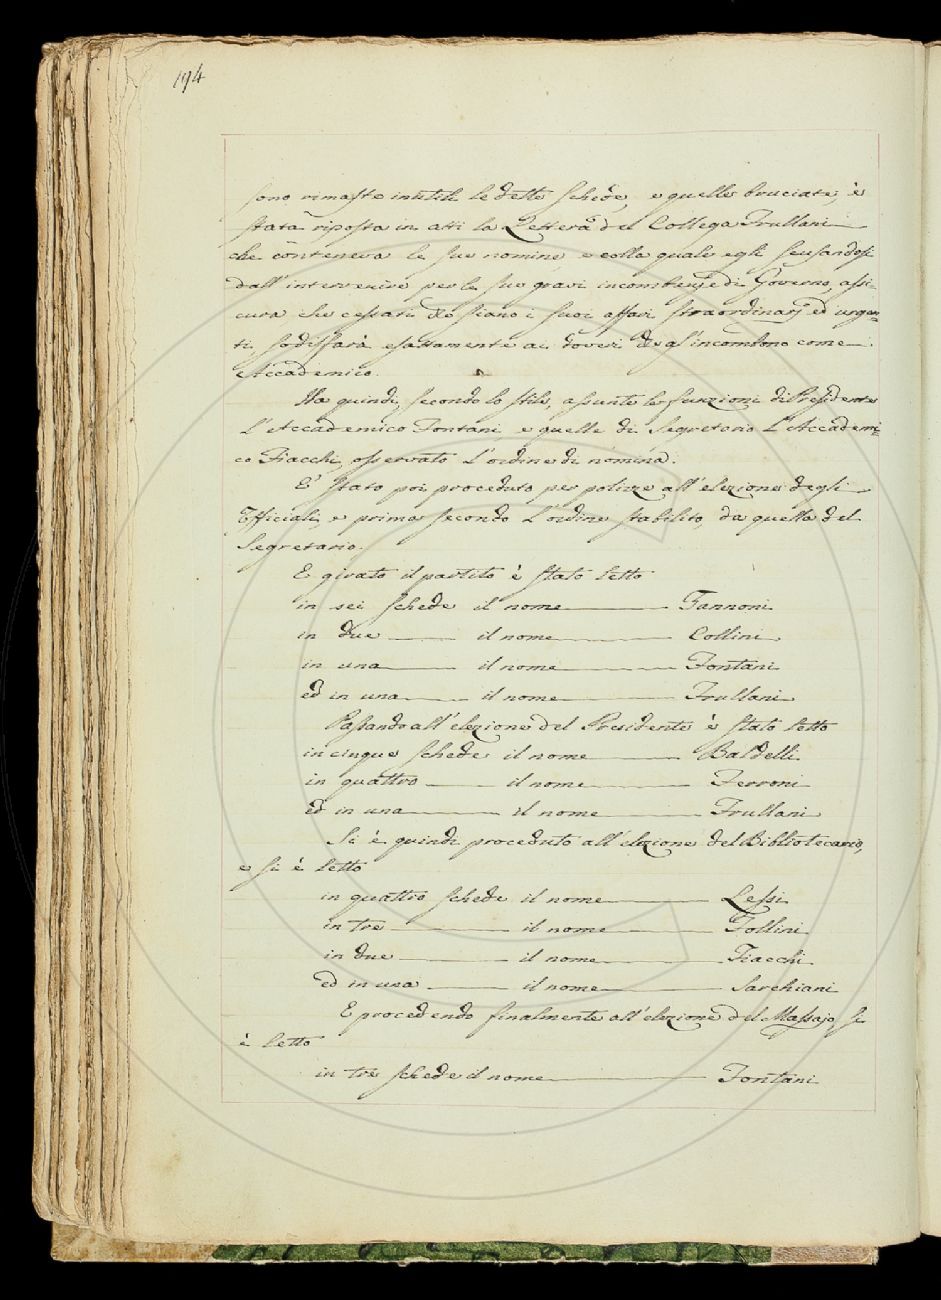 194
sono rimaste inutili le dette Schede, e quelle bruciate, è
stata riposta in atti la Lettera del Collega Frullani
che conteneva le sue nomine, e colla quale egli scusandosi
dall'intervenire per le sue gravi incombenze di Governo, assi-
cura che cessati che siano i suoi affari straordinarj ed urgen-
ti sodisfarà esattamente ai doveri che gl'incombono come
Accademico.
Ha quindi, secondo lo stile, assunte le funzioni di Presidente
l'Accademico Fontani, e quelle di Segretario l'Accademi-
co Fiacchi, osservato l'ordine di nomina.
E' stato poi proceduto per polizze all'elezione degli
Officiali, e prima secondo l'ordine stabilito, da quella del
Segretario.
E girato il partito è stato letto
in sei schede il nome Zannoni
in due il nome Collini
in una il nome Fontani
ed in una il nome Frullani
Passando all'elezione del Presidente è stato letto
in cinque schede il nome Baldelli
in quattro il nome Ferroni
ed in una il nome Frullani
Si è quindi proceduto all'elezione del Bibliotecario,
e si è letto
in quattro schede il nome Lessi
in tre il nome Follini
in due il nome Fiacchi
ed in una il nome Sarchiani
E procedendo finalmente all'elezione del Massajo, si
è letto
in tre schede il nome Fontani